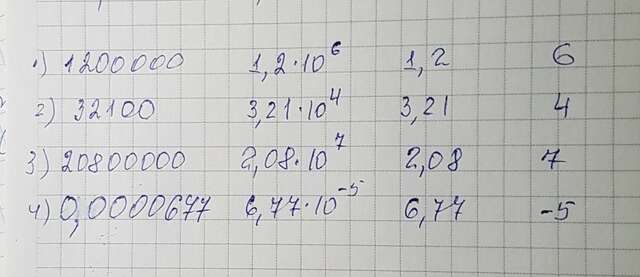 1) 1200000 1,2·10⁶ 1,2 6
2) 32100 3,21·10⁴ 3,21 4
3) 20800000 2,08·10⁷ 2,08 7
4) 0,0000677 6,77·10⁻⁵ 6,77 -5